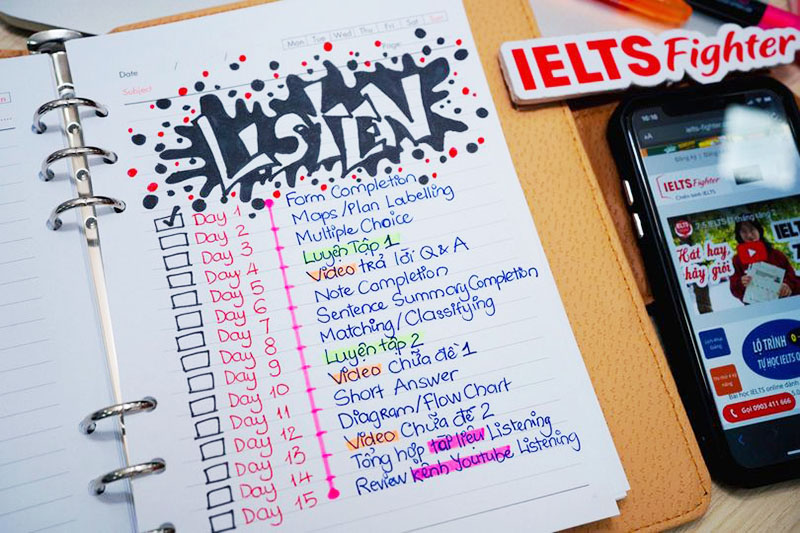 Mon Tue Wed Thu Fri Sat Sun
Date / /
Page:
Subject
LISTEN
Day 1 Form Completion
Day 2 Maps/Plan Labelling
Day 3 Multiple Choice
Day 4 Luyện Tập 1
Day 5 Video trả lời Q & A
Day 6 Note Completion
Day 7 Sentence Summary Completion
Day 8 Matching/Classifying
Day 9 Luyện tập 2
Day 10 Video chữa đề 1
Day 11 Short Answer
Day 12 Diagram/Flow Chart
Day 13 Video Chữa đề 2
Day 14 Tổng hợp tài liệu Listening
Day 15 Review kênh Youtube Listening
IELTS Fighter
AA
ielts-fighter
Đăng ký
IELTS Fighter
Hát hay,
hãy giỏi
IELT
LỘ TRÌNH
TỰ HỌC IELTS
Bài học IELTS online dành
Gọi 0903 411 666